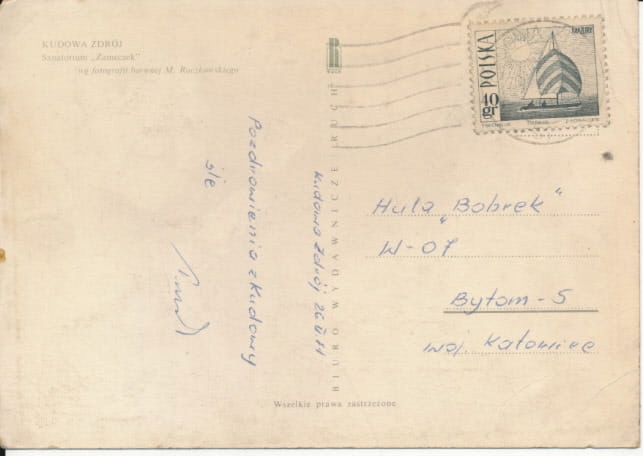 KUDOWA ZDRÓJ
Sanatorium „Zameczek”
wg fotografii barwnej M. Raczkowskiego
RUCH
POLSKA
10 gr
Kudowa Zdrój 26 II
Pozdrowienia z Kudowy
śle
BIURO WYDAWNICZE RUCH
Huta „Bobrek”
W-07
Bytom - 5
woj. Katowice
Wszelkie prawa zastrzeżone